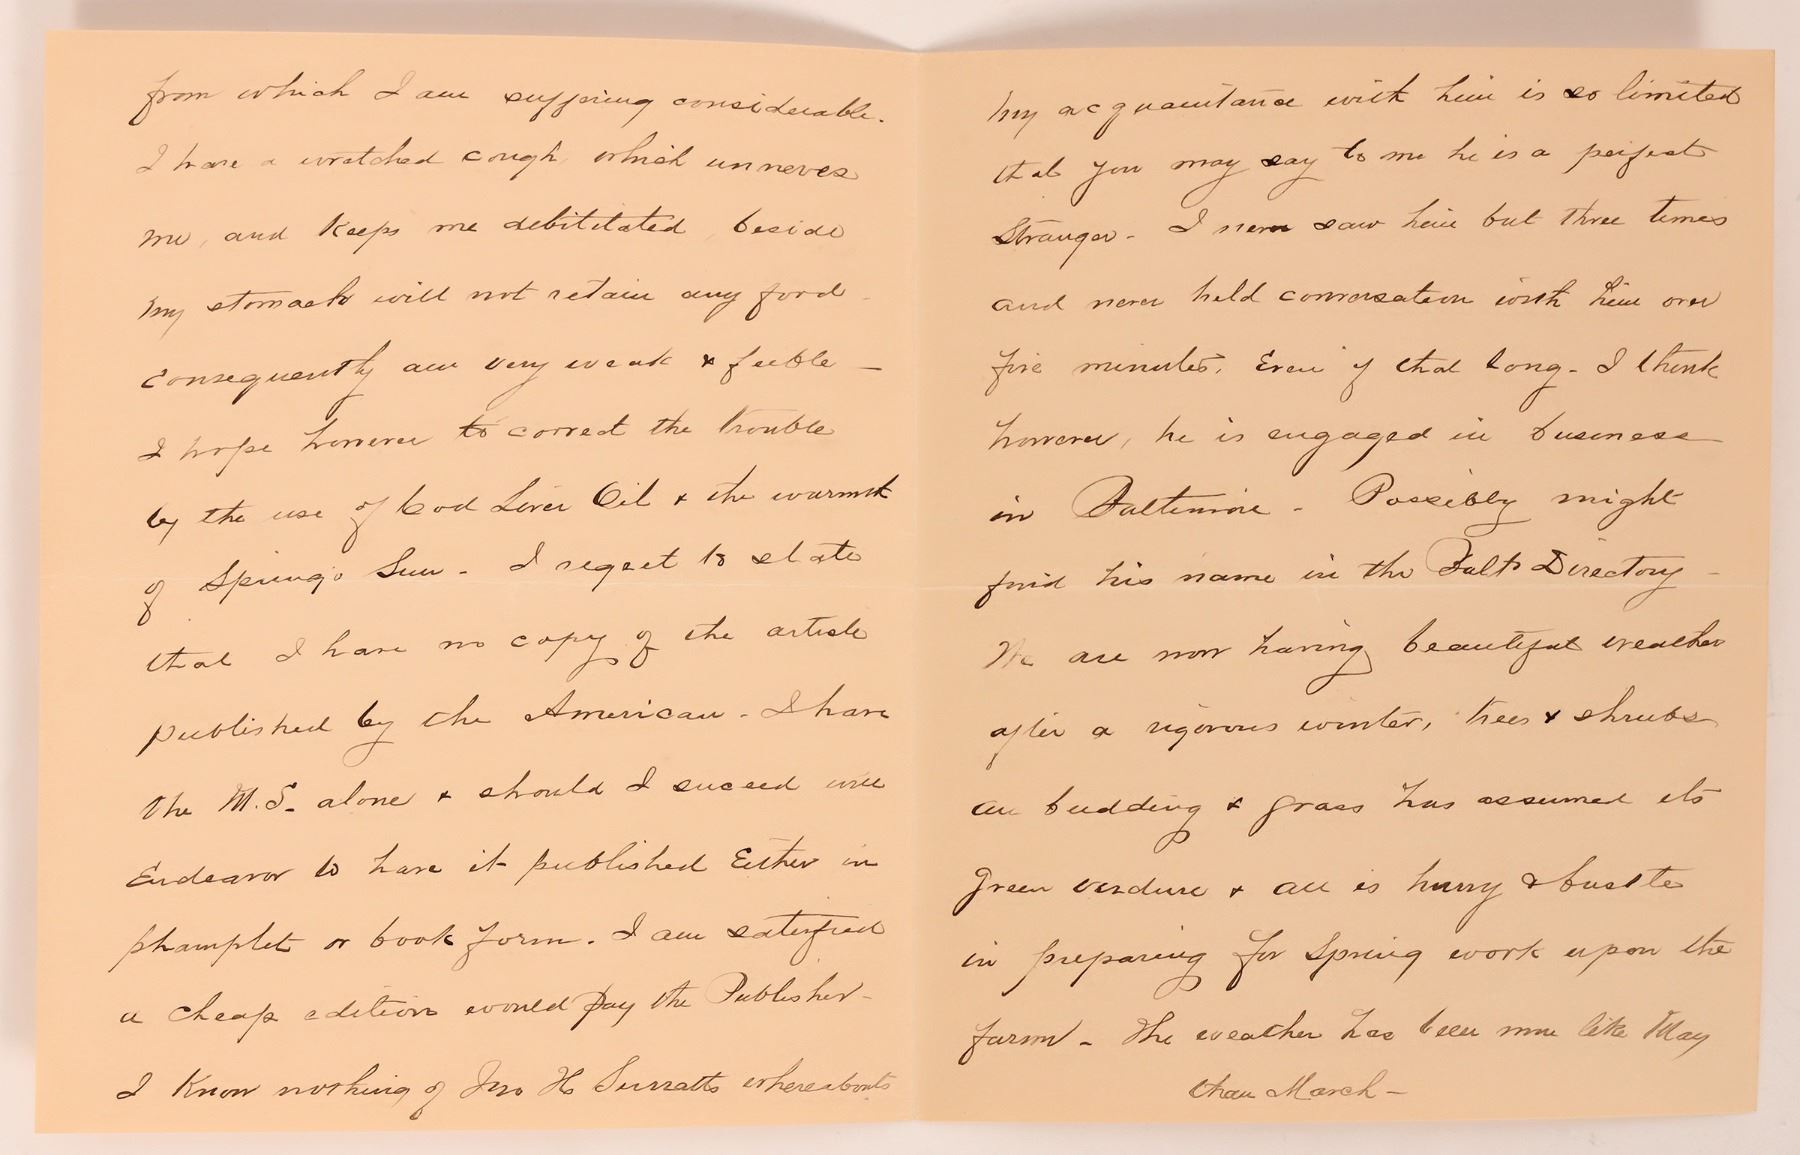 from which I am suffering considerable.
I have a wretched cough, which unnerves
me, and keeps me debilitated, beside
my stomach will not retain any food
consequently am very weak & feeble —
I hope however to correct the trouble
by the use of Cod Liver Oil & the warmth
of Spring's Sun - I regret to state
that I have no copy of the article
published by the American - I have
the M.S. alone & should I succeed will
Endeavor to have it published Either in
phamplet or book form. I am satisfied
a cheap edition would pay the Publisher -
I Know nothing of Jno H Surratts whereabouts
My acquaintance with him is so limited
that you may say to me he is a perfect
Stranger - I never saw him but three times
and never held conversation with him over
five minutes, Even if that long - I think
however, he is engaged in business
in Baltimore - Possibly might
find his name in the Balto Directory -
We are now having beautiful weather
after a rigorous winter, trees & shrubs
are budding & grass has assumed its
green verdure & all is hurry & bustle
in preparing for Spring work upon the
farm - The weather has been more like May
than March -